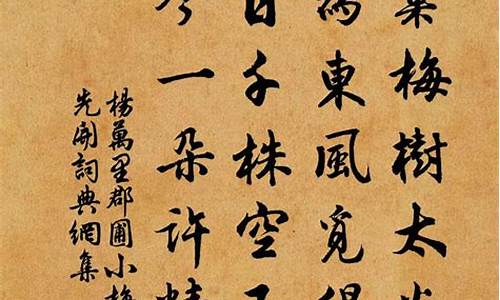 梅樹太
為東風覓得
日千株空
今一朵許精
楊萬里郡圃小梅
先開詞典網集